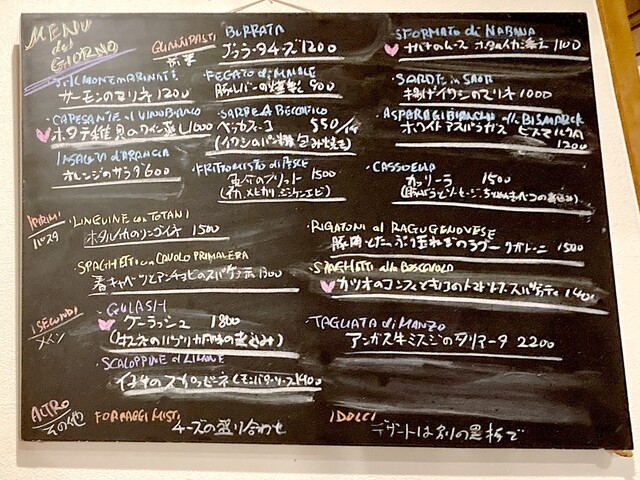 MENU
del
GIORNO
前菜
BURRATA
ブッラータチーズ 1200
SFORMATO di
1100
サーモンのマリネ 1200
FEGATO di MAIALE
豚レバーの 900
SARDE in SAOR
揚げイワシのマリネ 1000
CAPESANTE al VINO BIANCO
ホタテ稚貝のワイン蒸し 1000
SARDE A BECCAFICO
ベッカフィーコ 550/
(イワシのパン粉包み焼き)
ASPARAGI BIANCHI alla BISMARCK
ホワイトアスパラガス ビスマルク風
1200
INSALATA d'ARANCIA
オレンジのサラダ 600
FRITTO MISTO di PESCE
魚介のフリット 1500
CASSOEULA
カッソーラ 1500
I PRIMI
パスタ
・LINGUINE con TOTANI
ホタルイカのリングイネ 1500
・RIGATONI al RAGU GENOVESE
豚肉とたっぷり玉ねぎのラグー リガトーニ 1500
・SPAGHETTI con CAVOLO PRIMAVERA
春キャベツとアンチョビのスパゲティ 1300
SPAGHETTI alla BOSCAIOLA
カツオのコンフィとキノコのトマトソーススパゲティ 1400
I SECONDI
メイン
・GULASH
グーラッシュ 1800
・TAGLIATA di MANZO
アンガス牛ミスジのタリアータ 2200
・SCALOPPINE al LIMONE
1400
ALTRO
その他
FORMAGGI MISTI
チーズの盛り合わせ
I DOLCI
デザートは別の黒板で